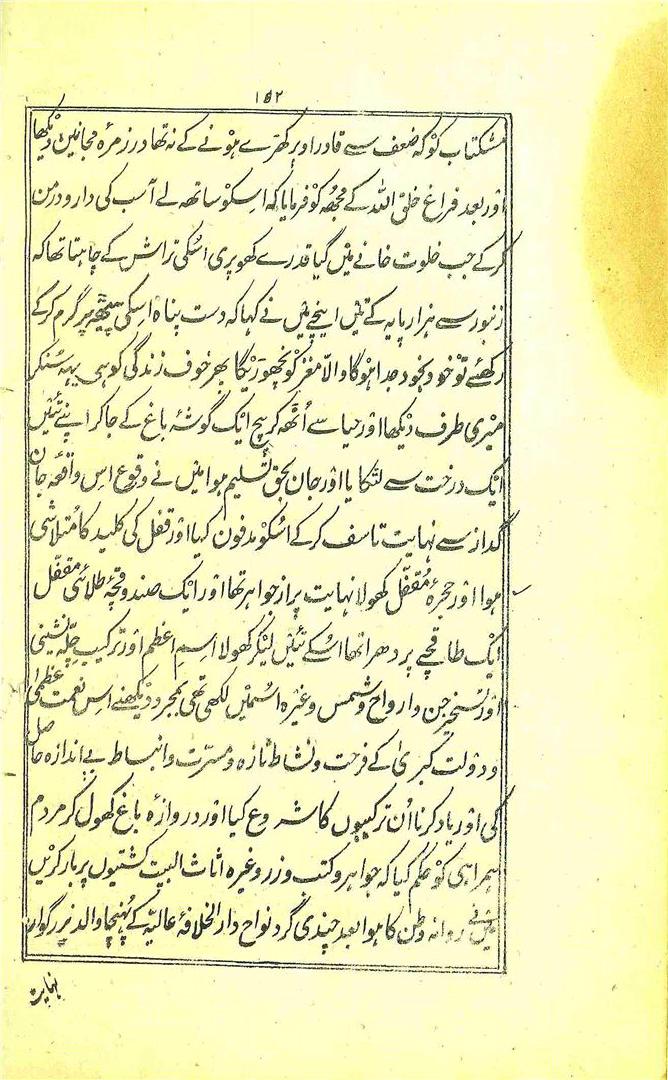 ۱۵۲
مسکتاب کو کہ ضعف سے قادر اوپر کھڑے ہونے کے نہ تھا در زمرۂ مجانین دیکھا
اور بعد فراغ خلق اللہ کے مجھہ کو فرمایا کہ اسکو ساتھہ لے آ سب کی دارو درمن
کر کے جب خلوت خانے میں گیا قدرے کھوپری اُسکی تراش کے چاہتا تھا کہ
زنبور سے ہزار پایہ کے تئیں اینچے میں نے کہا کہ دست پناہ اسکی پیٹھہ پر گرم کر کے
رکھئے تو خود بخود جدا ہوگا والّا مغز کو نچھوڑیگا پھر خوف زندگی کو ہی یہہ سُنکر
میری طرف دیکھا اور حیا سے اُٹھہ کر بیچ ایک گوشۂ باغ کے جا کر اپنے تئیں
ایک درخت سے لٹکایا اور جان بحق تسلیم ہوا میں نے وقوع اس واقعہ جان
گداز سے نہایت تاسف کر کے اُسکو مدفون کیا اور قفل کی کلید کا مُتلاشی
ہوا اور حجرۂ مُقفل کھولا نہایت پر از جواہر تھا اور ایک صندوقچۂ طلائی مقفّل
ایک طاقچے پر دھرا تھا اُسکے تئیں لیکر کھولا اسمِ اعظم اور ترکیب چلّہ نشینی
اور تسخیر جن و ارواح و شمس وغیرہ اسمیں لکھی تھی بمجرد دیکھنے اس نعمت عظمیٰ
و دولت کبریٰ کے فرحت و نشاط تازہ و مسرّت و انبساط بے اندازہ حاصل
کی اور یاد کرنا اُن ترکیبوں کا شروع کیا اور دروازہ باغ کھول کر مردم
ہمراہی کو حکم کیا کہ جواہر و کتب و زر وغیرہ اثاث البیت کشتیوں پر بار کریں
میں نے روانہ وطن کا ہوا بعد چندی گرد نواح دار الخلافۂ عالیہ کے پُہنچا والد بزرگوار
نہایت